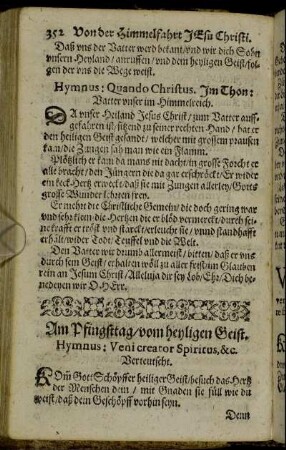 352 Von der Himmelfahrt JEsu Christi.
Daß vns der Vatter werd bekant/vnd wir dich Sohn
vnsern Heyland/anruffen/vnd dem heyligen Geist/fol-
gen der vns die Wege weist.
Hymnus: Quando Christus. Jm Thon:
Vatter vnser im Himmelreich.
DA vnser Heiland Jesus Christ/zum Vatter auff-
gefahren ist/sitzend zu seiner rechten Hand/hat er
den heiligen Geist gesandt/welcher mit grossem prausen
kam/die Zungen sah man wie ein Flamm.
Plötzlich er kam da mans nit dacht/in grosse Forcht er
alle bracht/den Jüngern die da gar erschröckt/Er wider
ein keck Hertz erweckt/daß sie mit Zungen allerley/Gotts
grosse Wunder schreien frey.
Ernehrt die Christliche Gemein/die doch gering war
vnd sehr klein/die Hertzen die er blöd vermerckt/durch sei-
ne krafft er tröst vnd starckt/erleucht sie/vnnd standhafft
erhält/wider Todt/Teuffel vnd die Welt.
Den Vatter wir drumb allermeist/bitten/daß er vns
durch sein Geist/erhalten wöll zu aller frist/im Glauben
rein an Jesum Christ/Alleluja dir sey Lob/Ehr/Dich be-
nedeyen wir O HErr.
Am Pfingsttag/vom heyligen Geist.
Hymnus: Veni creator Spiritus, &c.
Verteutscht.
KOm Gott Schöpffer heiliger Geist/besuch das Hertz
der Menschen dein/mit Gnaden sie füll wie du
weist/daß dein Geschöpff vorhin seyn.
Denn